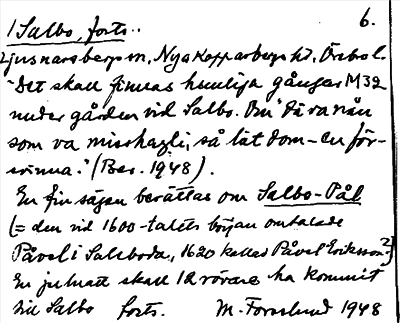 1 Salbo, forts.. 6.
Ljusnarsbergs sn, Nya Kopparbergs hd, Örebro l.
"Det skall finnas hemliga gångar M32
under gården vid Salbo. Om "dä va nån
som va misshagli, så lät dom-en för-
svinna." (Ber. 1948).
En fin sägen berättas om Salbo-Pål
(= den vid 1600-talets början omtalade
Påvel i Salsboda, 1620 kallad Påvel Eriksson?)
En julnatt skall 12 rövare ha kommit
till Salbo forts. M. Forsslund 1948